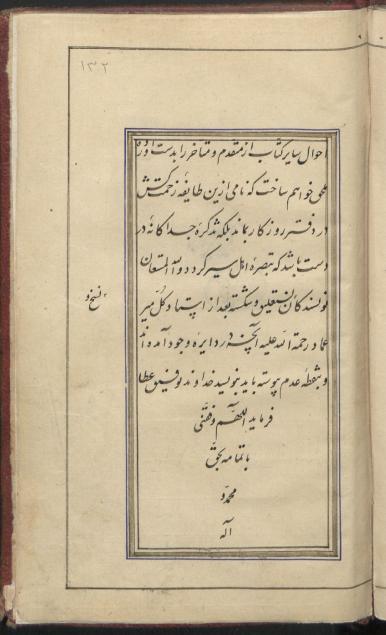 ۱۳۲
احوال سایر کتاب از متقدم و متاخر را بدست آورد
ملحق خواهم ساخت که نامی ازین طایفه زحمت کش
در دفتر روزگار بماند بلکه تذکره جداگانه در
دست باشد که تبصره اهل سیر گردد و الله المستعان
نسخ و
نویسندگان نستعلیق و شکسته بعد از استاد کل میر
عماد رحمة الله علیه آنچه در دایره وجود آمده اند
و بنقطه عدم پیوسته باید بنویسد خداوند توفیق عطا
فرماید اللهم وفقنی
باتمامه بحق
محمد و
آله